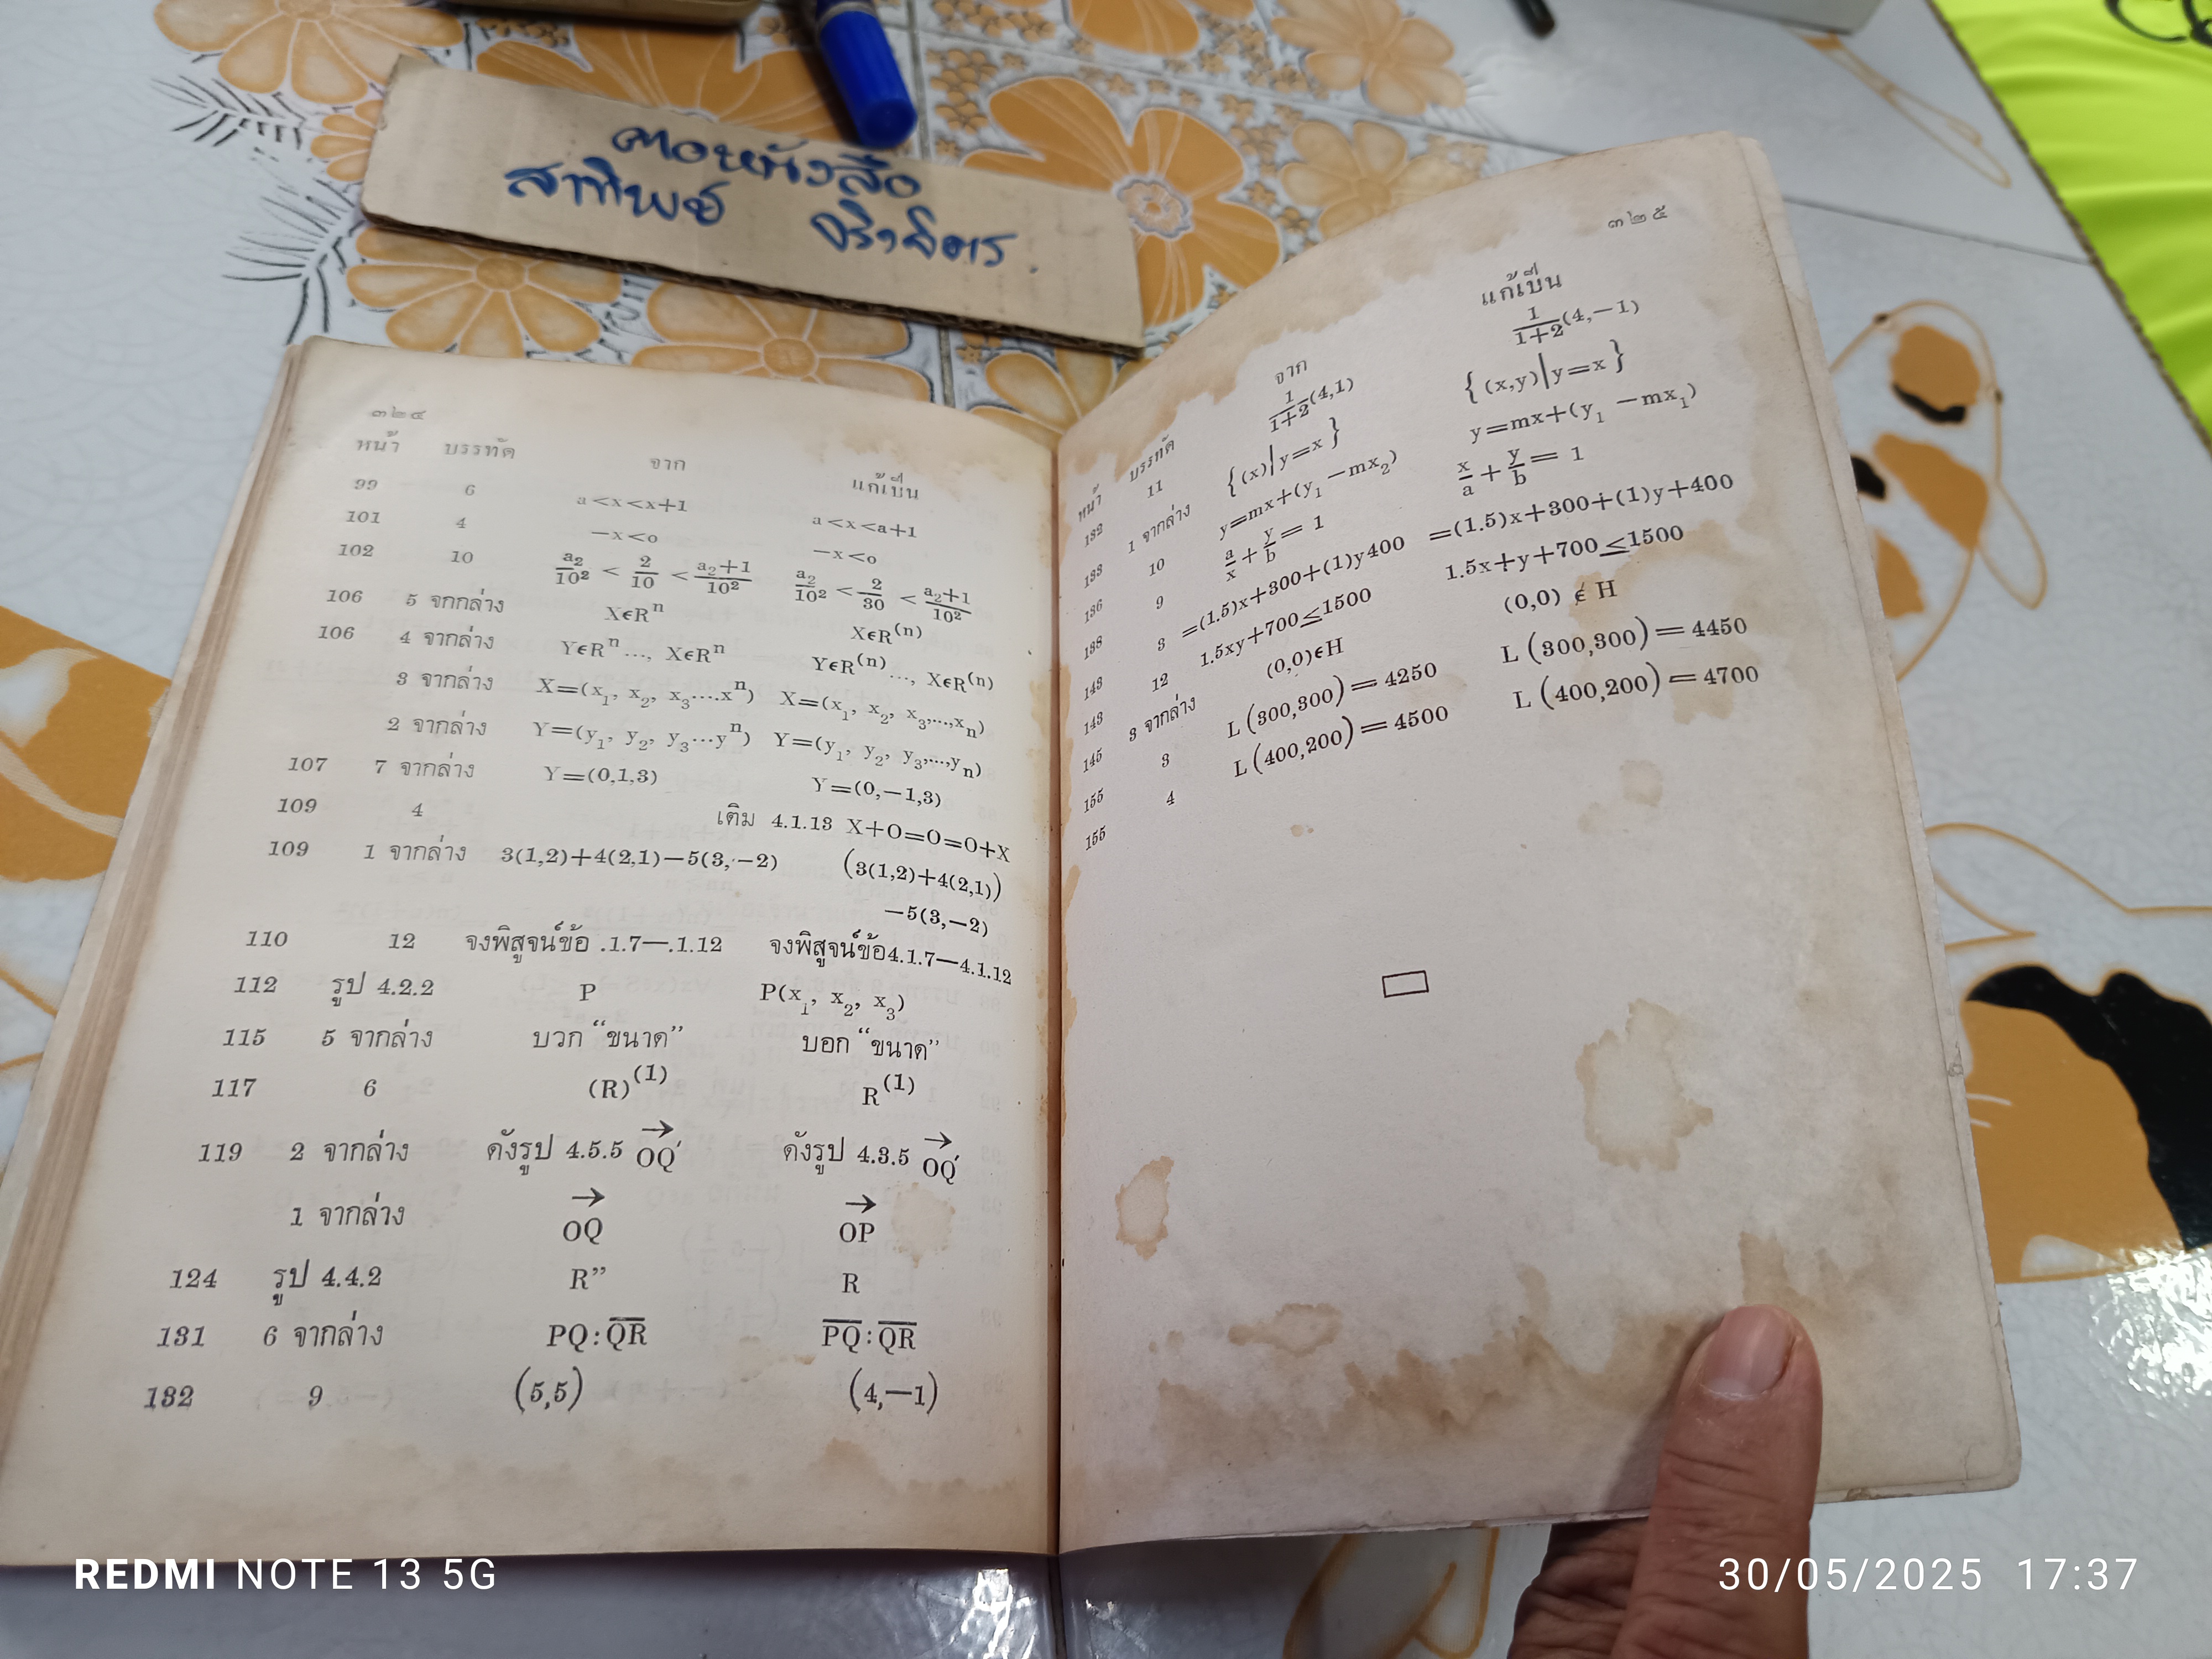 ตอหนังสือ
สาทิพย์ จิราจิตร.
๓๒๔
หน้า บรรทัด จาก แก้เป็น
99 6 a<x<x+1 a<x<a+1
101 4 —x<o —x<o
102 10 a₂/10² < 2/10 < a₂+1/10² a₂/10² < 2/30 < a₂+1/10²
106 5 จกกล่าง XϵRⁿ XϵR⁽ⁿ⁾
106 4 จากล่าง YϵRⁿ..., XϵRⁿ YϵR⁽ⁿ⁾..., XϵR⁽ⁿ⁾
3 จากล่าง X=(x₁, x₂, x₃....xⁿ) X=(x₁, x₂, x₃,...,xₙ)
2 จากล่าง Y=(y₁, y₂, y₃...yⁿ) Y=(y₁, y₂, y₃,...,yₙ)
107 7 จากล่าง Y=(0,1,3) Y=(0,—1,3)
109 4 เติม 4.1.13 X+O=O=O+X
109 1 จากล่าง 3(1,2)+4(2,1)—5(3,—2) (3(1,2)+4(2,1))
—5(3,—2)
110 12 จงพิสูจน์ข้อ .1.7—.1.12 จงพิสูจน์ข้อ4.1.7—4.1.12
112 รูป 4.2.2 P P(x₁, x₂, x₃)
115 5 จากล่าง บวก “ขนาด” บอก “ขนาด”
117 6 (R)⁽¹⁾ R⁽¹⁾
119 2 จากล่าง ดังรูป 4.5.5 O⃗Q′ ดังรูป 4.3.5 O⃗Q′
1 จากล่าง O⃗Q O⃗P
124 รูป 4.4.2 R” R
131 6 จากล่าง PQ:Q̅R̅ P̅Q̅:Q̅R̅
132 9 (5,5) (4,—1)
๓๒๕
หน้า บรรทัด จาก แก้เป็น
132 11 1/1+2(4,1) 1/1+2(4,—1)
133 1 จากล่าง {(x)|y=x} {(x,y)|y=x}
136 10 y=mx+(y₁ —mx₂) y=mx+(y₁ —mx₁)
138 9 a/x + y/b = 1 x/a + y/b = 1
143 3 =(1.5)x+300+(1)y400 =(1.5)x+300+(1)y+400
143 12 1.5xy+700≤1500 1.5x+y+700≤1500
145 3 จากล่าง (0,0)ϵH (0,0) ∉ H
155 3 L(300,300)=4250 L(300,300)=4450
155 4 L(400,200)=4500 L(400,200)=4700
REDMI NOTE 13 5G
30/05/2025 17:37